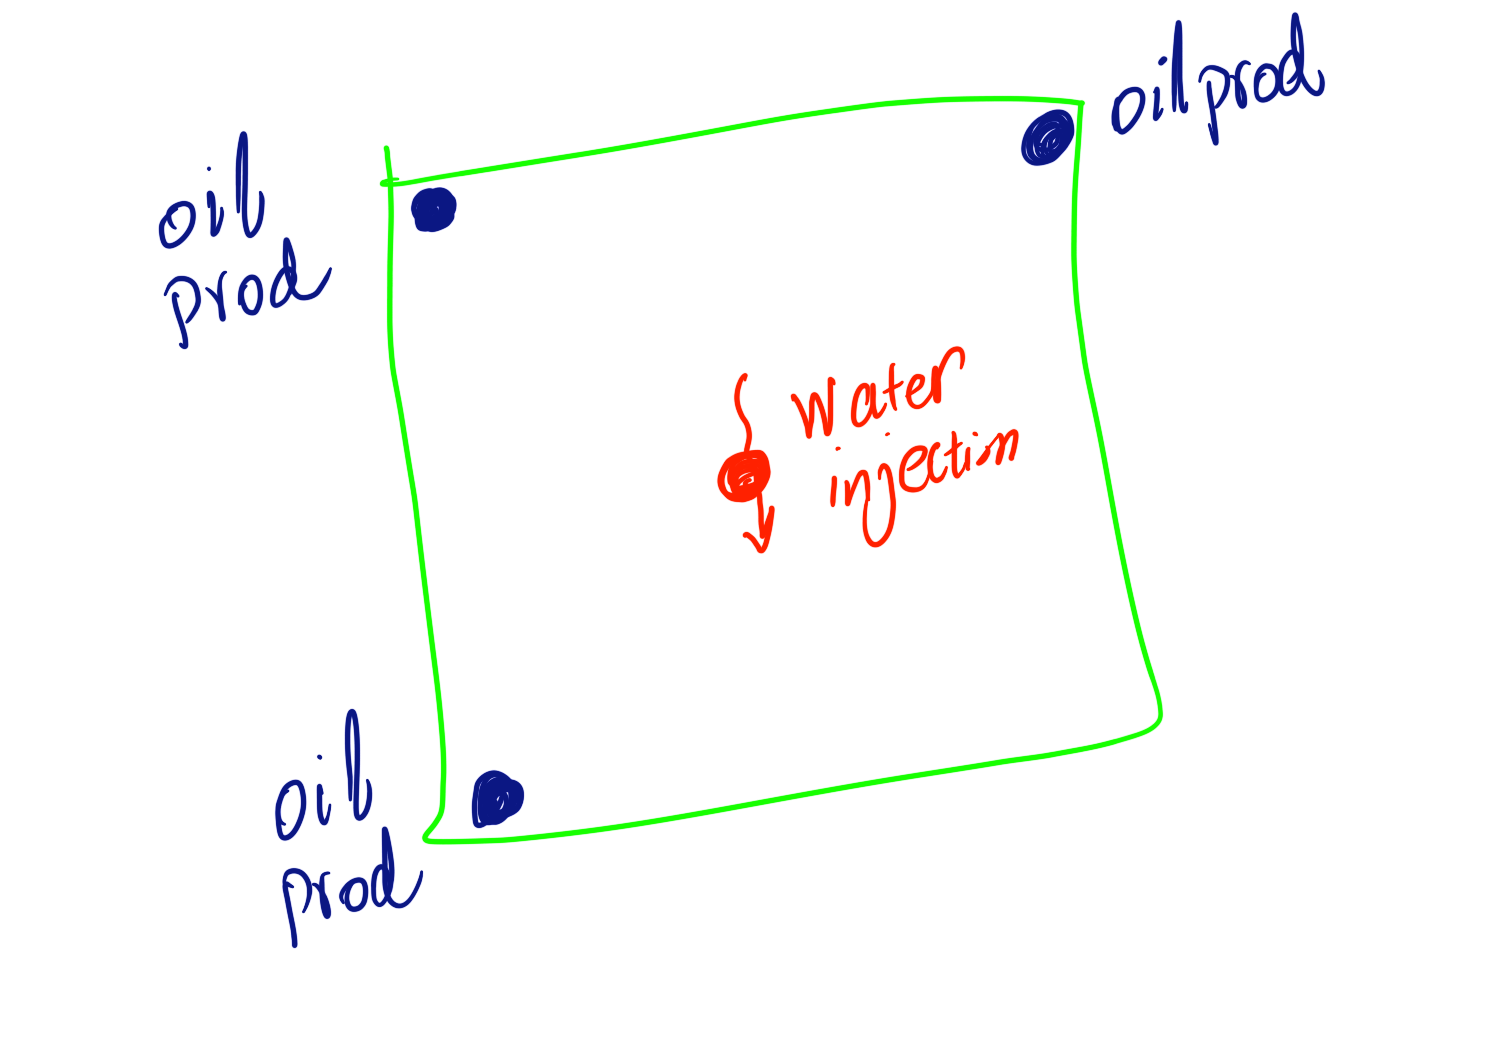 oil prod
oil
prod
water
injection
oil
prod